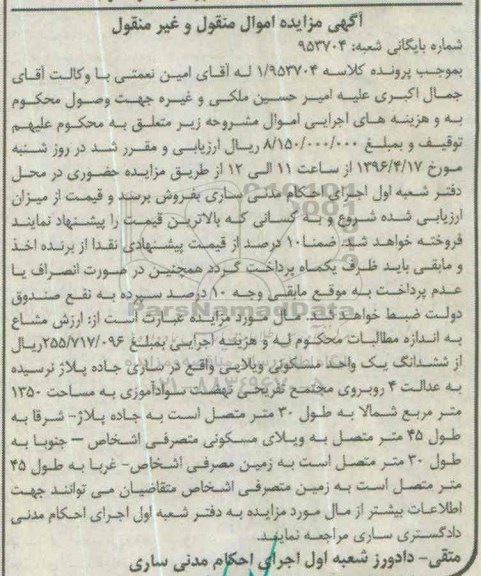 آگهی مزایده اموال منقول و غیر منقول
شماره بایگانی شعبه: ۹۵۳۷۰۴
بموجب پرونده کلاسه ۱/۹۵۳۷۰۴ له آقای امین نعمتی با وکالت آقای
جمال اکبری علیه امیر حسین ملکی و غیره جهت وصول محکوم
به و هزینه های اجرایی اموال مشروحه زیر متعلق به محکوم علیهم
توقیف و بمبلغ ۸/۱۵۰/۰۰۰/۰۰۰ ریال ارزیابی و مقرر شد در روز شنبه
مورخ ۱۳۹۶/۴/۱۷ از ساعت ۱۱ الی ۱۲ از طریق مزایده حضوری در محل
دفتر شعبه اول اجرای احکام مدنی ساری بفروش برسد و قیمت از میزان
ارزیابی شده شروع و به کسانی که بالاترین قیمت را پیشنهاد نمایند
فروخته خواهد شد. ضمنا ۱۰ درصد از قیمت پیشنهادی نقدا از برنده اخذ
و مابقی باید ظرف یکماه پرداخت گردد همچنین در صورت انصراف یا
عدم پرداخت به موقع مابقی وجه ۱۰ درصد سپرده به نفع صندوق
دولت ضبط خواهد شد. مال مورد مزایده عبارت است از: ارزش مشاع
به اندازه مطالبات محکوم له و هزینه اجرایی بمبلغ ۲۵۵/۷۱۷/۰۹۶ریال
از ششدانگ یک واحد مسکونی ویلایی واقع در ساری جاده پلاژ نرسیده
به عدالت ۴ روبروی مجتمع تفریحی نهضت سوادآموزی به مساحت ۱۳۵۰
متر مربع شمالا به طول ۳۰ متر متصل است به جاده پلاژ- شرقا به
طول ۴۵ متر متصل به ویلای مسکونی متصرفی اشخاص – جنوبا به
طول ۳۰ متر متصل است به زمین مصرفی اشخاص- غربا به طول ۴۵
متر متصل است به زمین متصرفی اشخاص متقاضیان می توانند جهت
اطلاعات بیشتر از مال مورد مزایده به دفتر شعبه اول اجرای احکام مدنی
دادگستری ساری مراجعه نمایند.
متقی- دادورز شعبه اول اجرای احکام مدنی ساری
ParsNamadData